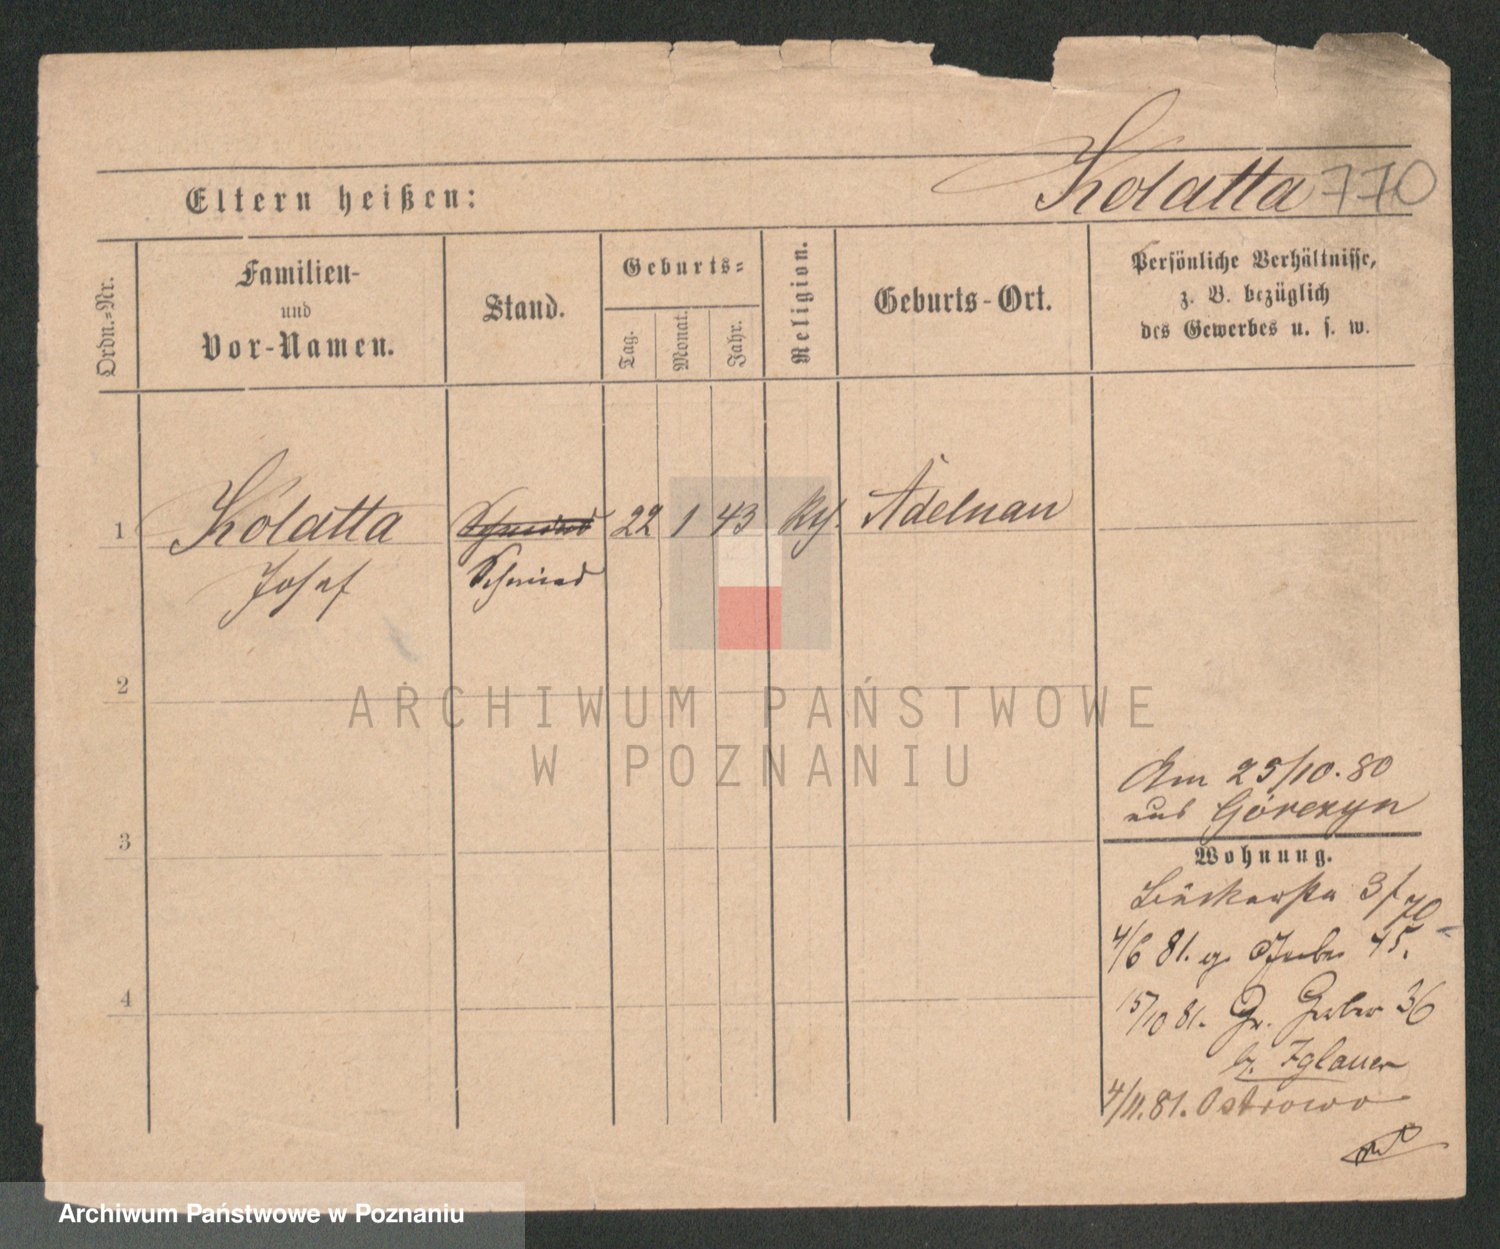 Kolatta 770
Eltern heißen:
Ordn.-Nr.
Familien-
und
Vor-Namen.
Stand.
Geburts-
Tag.
Monat.
Jahr.
Religion.
Geburts-Ort.
Persönliche Verhältnisse,
z. B. bezüglich
des Gewerbes u. s. w.
1 Kolatta 22 1 43 Adelnau
Josef Schmied
2
3
4
Am 25/10. 80
aus Górczyn
Wohnung.
Bäckerstr 3
4/6 81. 45.
15/10 81. Gr. Gerber 36
b. Iglauer
4/11. 81. Ostrowo
ARCHIWUM PAŃSTWOWE
W POZNANIU
Archiwum Państwowe w Poznaniu